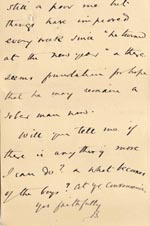 still a poor one but
things have improved
every week since "he turned
at the new year" & there
seems foundation for hope
that he may remain a
sober man now.
Will you tell me if
there is anything more
I can do? & what becomes
of the boys? at yr convenience
Yrs faithfully